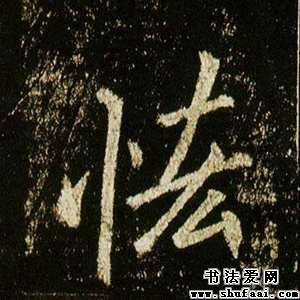 怯
书法爱网
www.shufaai.com